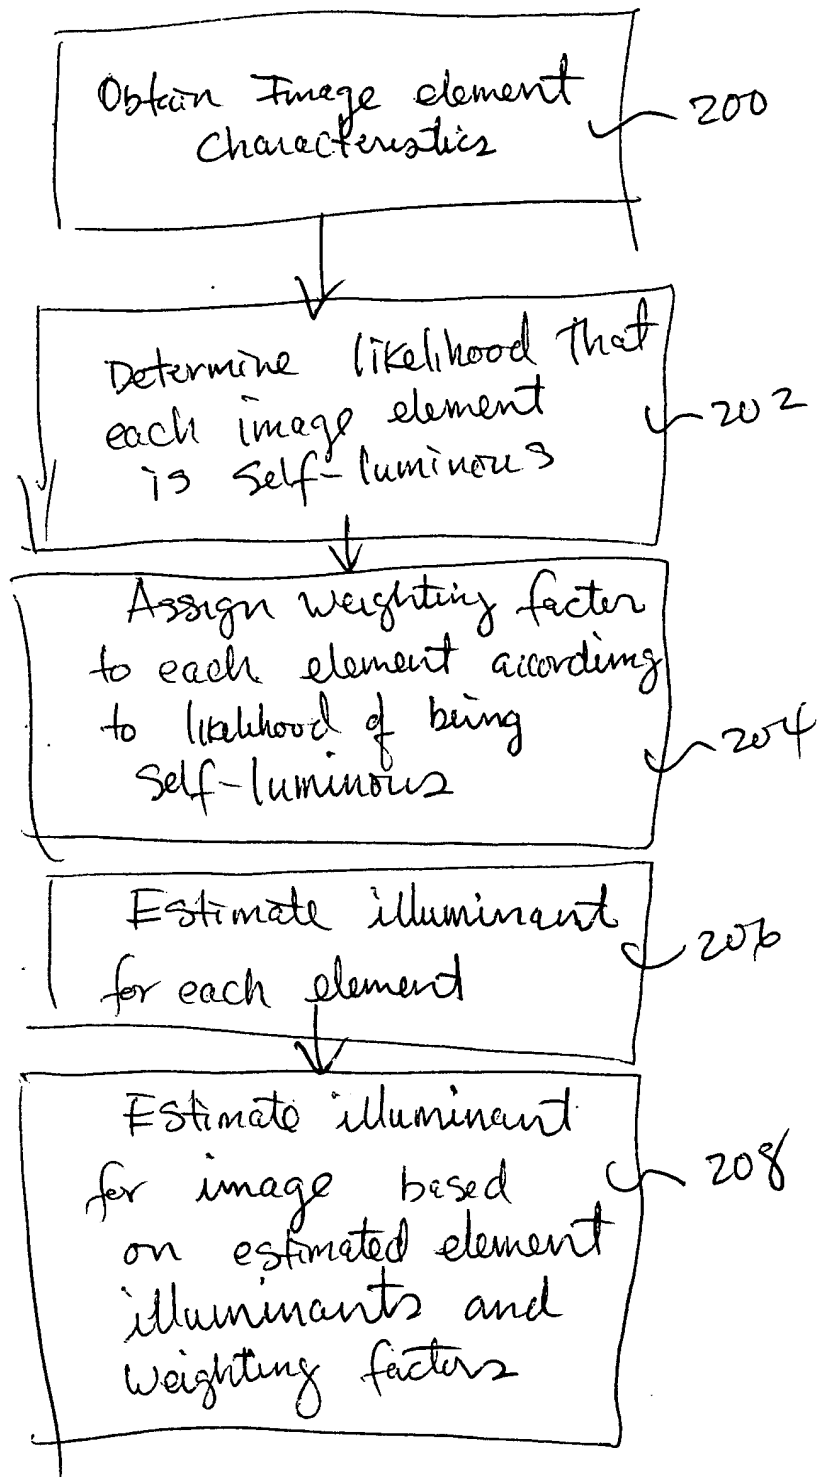 Obtain Image element
Characteristics
200
Determine likelihood that
each image element
is Self-luminous
202
Assign weighting factor
to each element according
to likelihood of being
Self-luminous
204
Estimate illuminant
for each element
206
Estimate illuminant
for image based
on estimated element
illuminants and
weighting factors
208